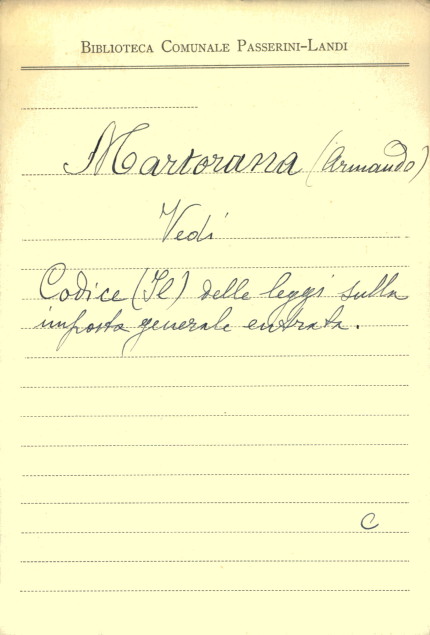 Biblioteca Comunale Passerini-Landi
Martorana (Armando)
Vedi
Codice (Il) delle leggi sulla
imposta generale entrata.
C